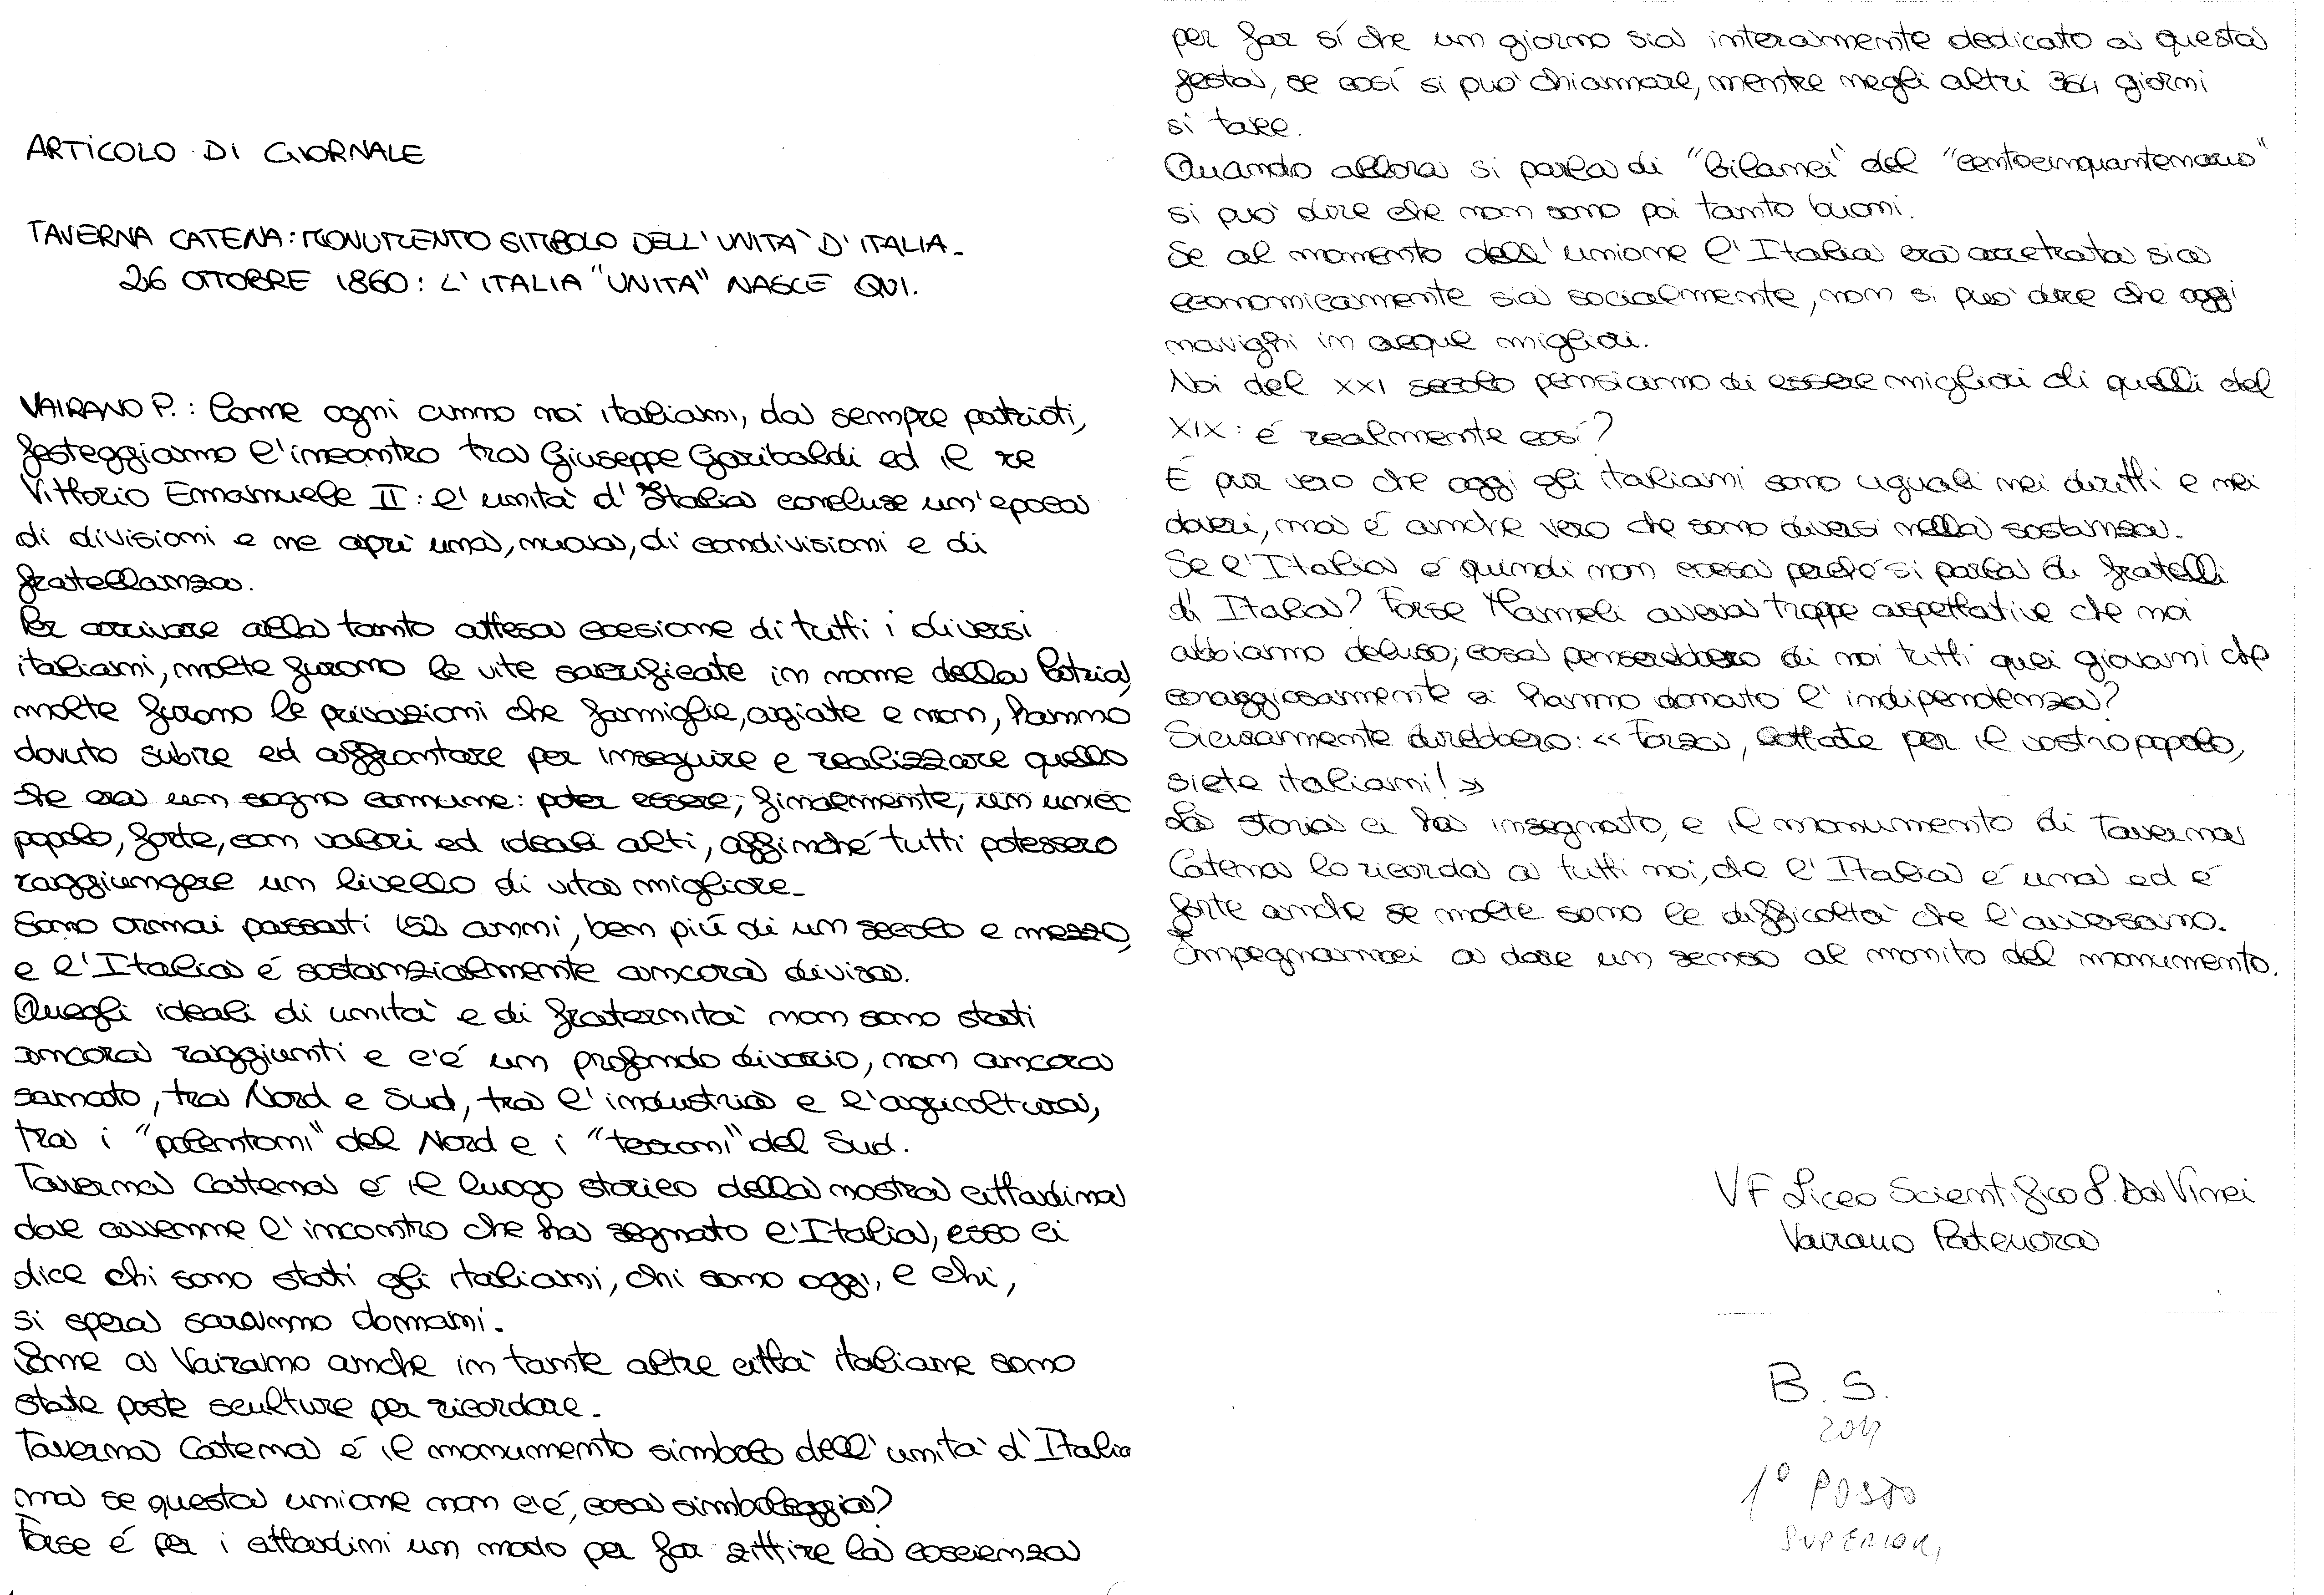 ARTICOLO DI GIORNALE
TAVERNA CATENA: MONUMENTO SIMBOLO DELL'UNITA' D'ITALIA.
26 OTTOBRE 1860: L'ITALIA "UNITA" NASCE QUI.
VAIRANO P.: Come ogni anno noi italiani, da sempre patrioti,
festeggiamo l'incontro tra Giuseppe Garibaldi ed il re
Vittorio Emanuele II: l'unità d'Italia concluse un'epoca
di divisioni e ne aprì una, nuova, di condivisioni e di
fratellanza.
Per arrivare alla tanto attesa coesione di tutti i diversi
italiani, molte furono le vite sacrificate in nome della Patria,
molte furono le privazioni che famiglie, agiate e non, hanno
dovuto subire ed affrontare per inseguire e realizzare quello
che era un sogno comune: poter essere, finalmente, un unico
popolo, forte, con valori ed ideali alti, affinché tutti potessero
raggiungere un livello di vita migliore.
Sono ormai passati 152 anni, ben più di un secolo e mezzo,
e l'Italia é sostanzialmente ancora divisa.
Quegli ideali di unità e di fraternità non sono stati
ancora raggiunti e c'é un profondo divario, non ancora
sanato, tra Nord e Sud, tra l'industria e l'agricoltura,
tra i "polentoni" del Nord e i "terroni" del Sud.
Taverna Catena é il luogo storico della nostra cittadina
dove avvenne l'incontro che ha segnato l'Italia, esso ci
dice chi sono stati gli italiani, chi sono oggi, e chi,
si spera saranno domani.
Come a Vairano anche in tante altre città italiane sono
state poste sculture per ricordare.
Taverna Catena é il monumento simbolo dell'unità d'Italia
ma se questa unione non c'é, cosa simboleggia?
Forse é per i cittadini un modo per far zittire la coscienza
per far sí che un giorno sia interamente dedicato a questa
festa, se cosí si puo' chiamare, mentre negli altri 364 giorni
si tace.
Quando allora si parla di "bilanci" del "centocinquantenario"
si puo' dire che non sono poi tanto buoni.
Se al momento dell'unione l'Italia era arretrata sia
economicamente sia socialmente, non si puo' dire che oggi
navighi in acque migliori.
Noi del XXI secolo pensiamo di essere migliori di quelli del
XIX: é realmente cosí?
É pur vero che oggi gli italiani sono uguali nei diritti e nei
doveri, ma é anche vero che sono diversi nella sostanza.
Se l'Italia é quindi non coesa perché si parla di fratelli
di Italia? Forse Mameli aveva troppe aspettative che noi
abbiamo deluso; cosa penserebbero di noi tutti quei giovani che
coraggiosamente ci hanno donato l'indipendenza?
Sicuramente direbbero: «Forza, lottate per il vostro popolo,
siete italiani!»
La storia ci ha insegnato, e il monumento di Taverna
Catena lo ricorda a tutti noi, che l'Italia é una ed é
forte anche se molte sono le difficoltà che l'avversano.
Impegnamoci a dare un senso al monito del monumento.
VF Liceo Scientifico L. Da Vinci
Vairano Patenora
B. S.
1° POSTO
SUPERIORI